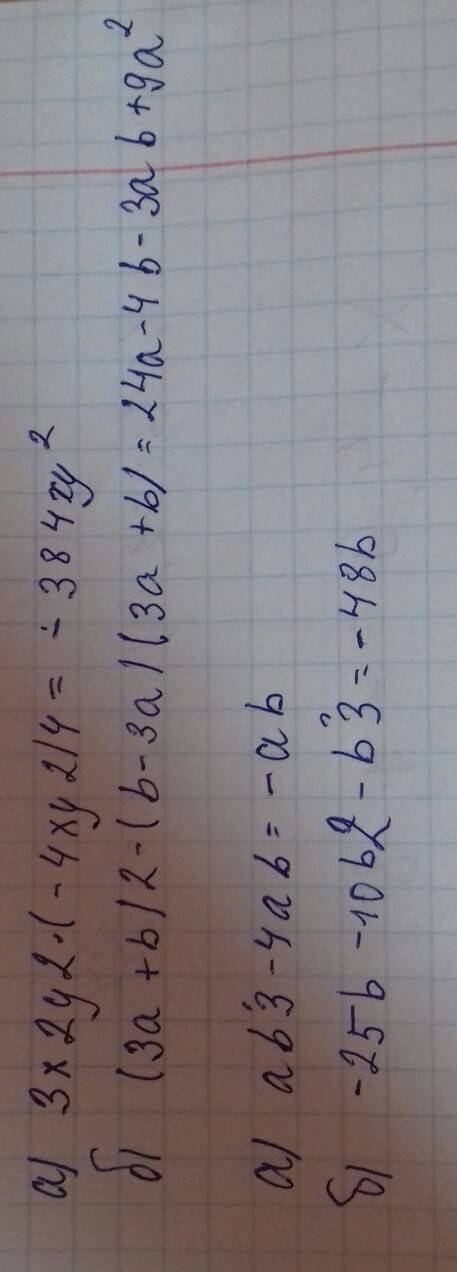 а) 3x2y2·(-4xy2)4 = -384xy²
б) (3a+b)2-(b-3a)(3a+b) = 24a-4b-3ab+9a²
а) ab3-4ab = -ab
б) -25b-10b2-b3 = -48b